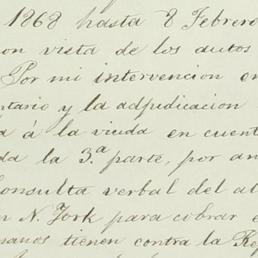 1868 hasta 8 Febrero
con vista de los autos
Por mi intervencion en
ntario y la adjudicacion
á la viuda en cuent
da la 3.ª parte, por an
Consulta verbal del a
n N. York para cobrar e
manos tienen contra la Rep